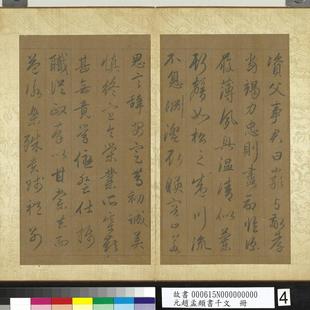 資父事君曰嚴與敬孝
當竭力忠則盡命臨深
履薄夙興溫凊似蘭
斯馨如松之盛川流
不息淵澄取映容止若
思言辭安定篤初誠美
慎終宜令榮業所基籍
甚無竟學優登仕攝
職從政存以甘棠去而
益詠樂殊貴賤禮別
故書 000615N000000000
元趙孟頫書千文 冊
4